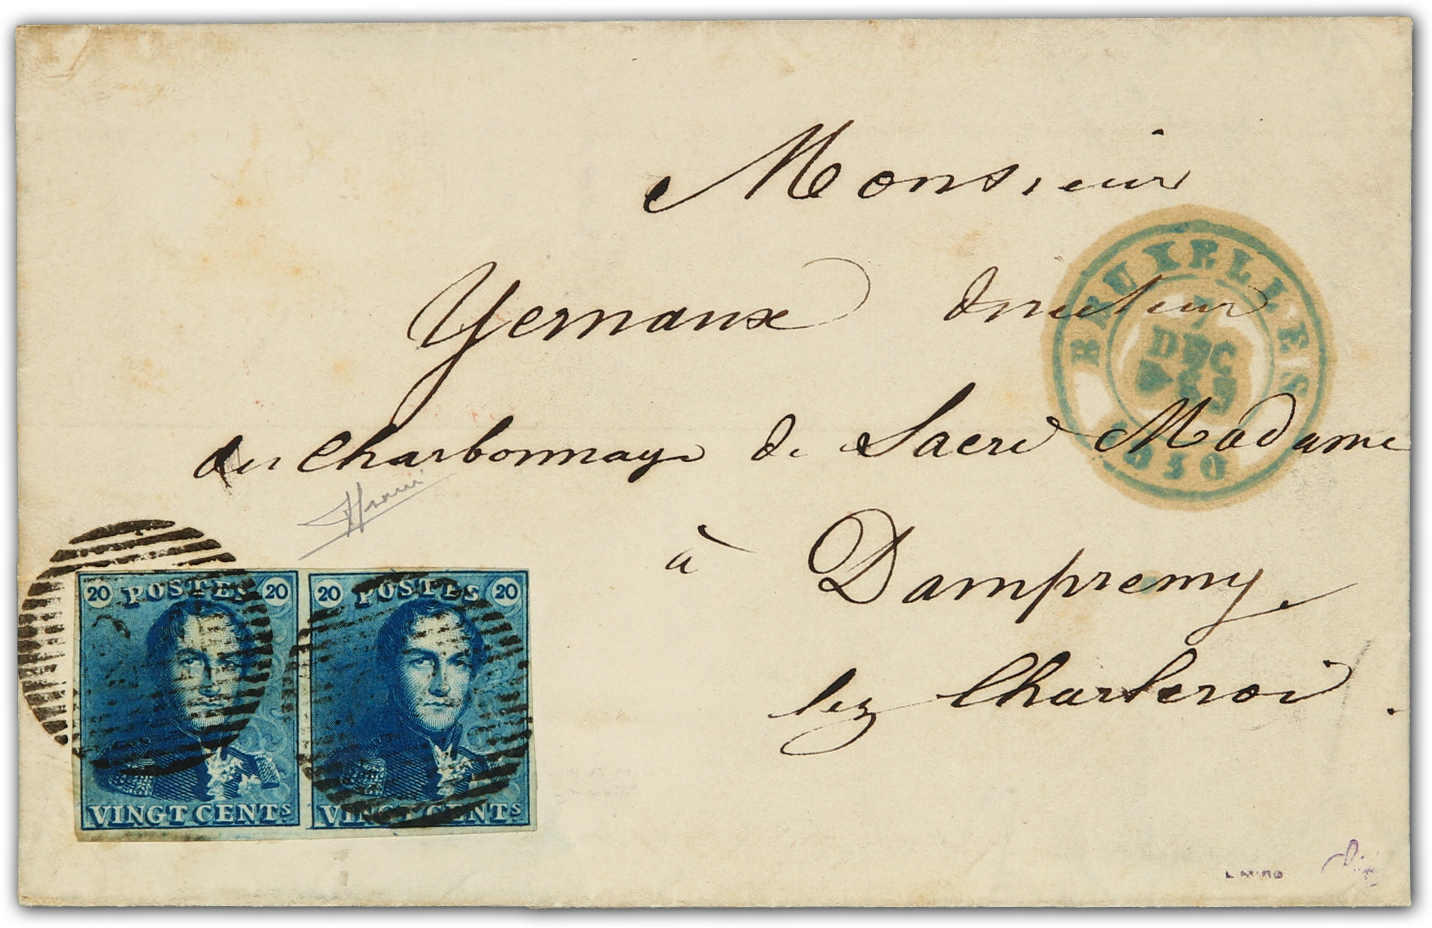 Monsieur
Yernaux directeur
du Charbonnage de Sacré Madame
à Dampremy
lez Charleroi.
BRUXELLES
DEC
20 POSTES 20
VINGT CENTS
20 POSTES 20
VINGT CENTS